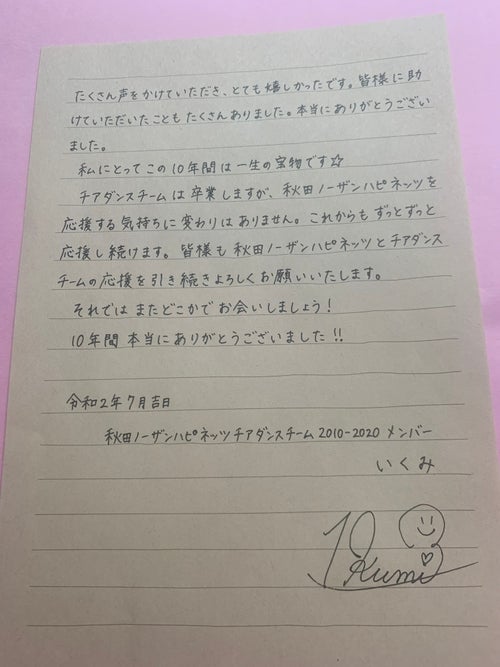 たくさん声をかけていただき、とても嬉しかったです。皆様に助
けていただいたこともたくさんありました。本当にありがとうござい
ました。
私にとってこの10年間は一生の宝物です☆
チアダンスチームは卒業しますが、秋田ノーザンハピネッツを
応援する気持ちに変わりはありません。これからもずっとずっと
応援し続けます。皆様も秋田ノーザンハピネッツとチアダンス
チームの応援を引き続きよろしくお願いいたします。
それではまたどこかでお会いしましょう!
10年間本当にありがとうございました!!
令和2年7月吉日
秋田ノーザンハピネッツチアダンスチーム2010-2020メンバー
いくみ
19kumi